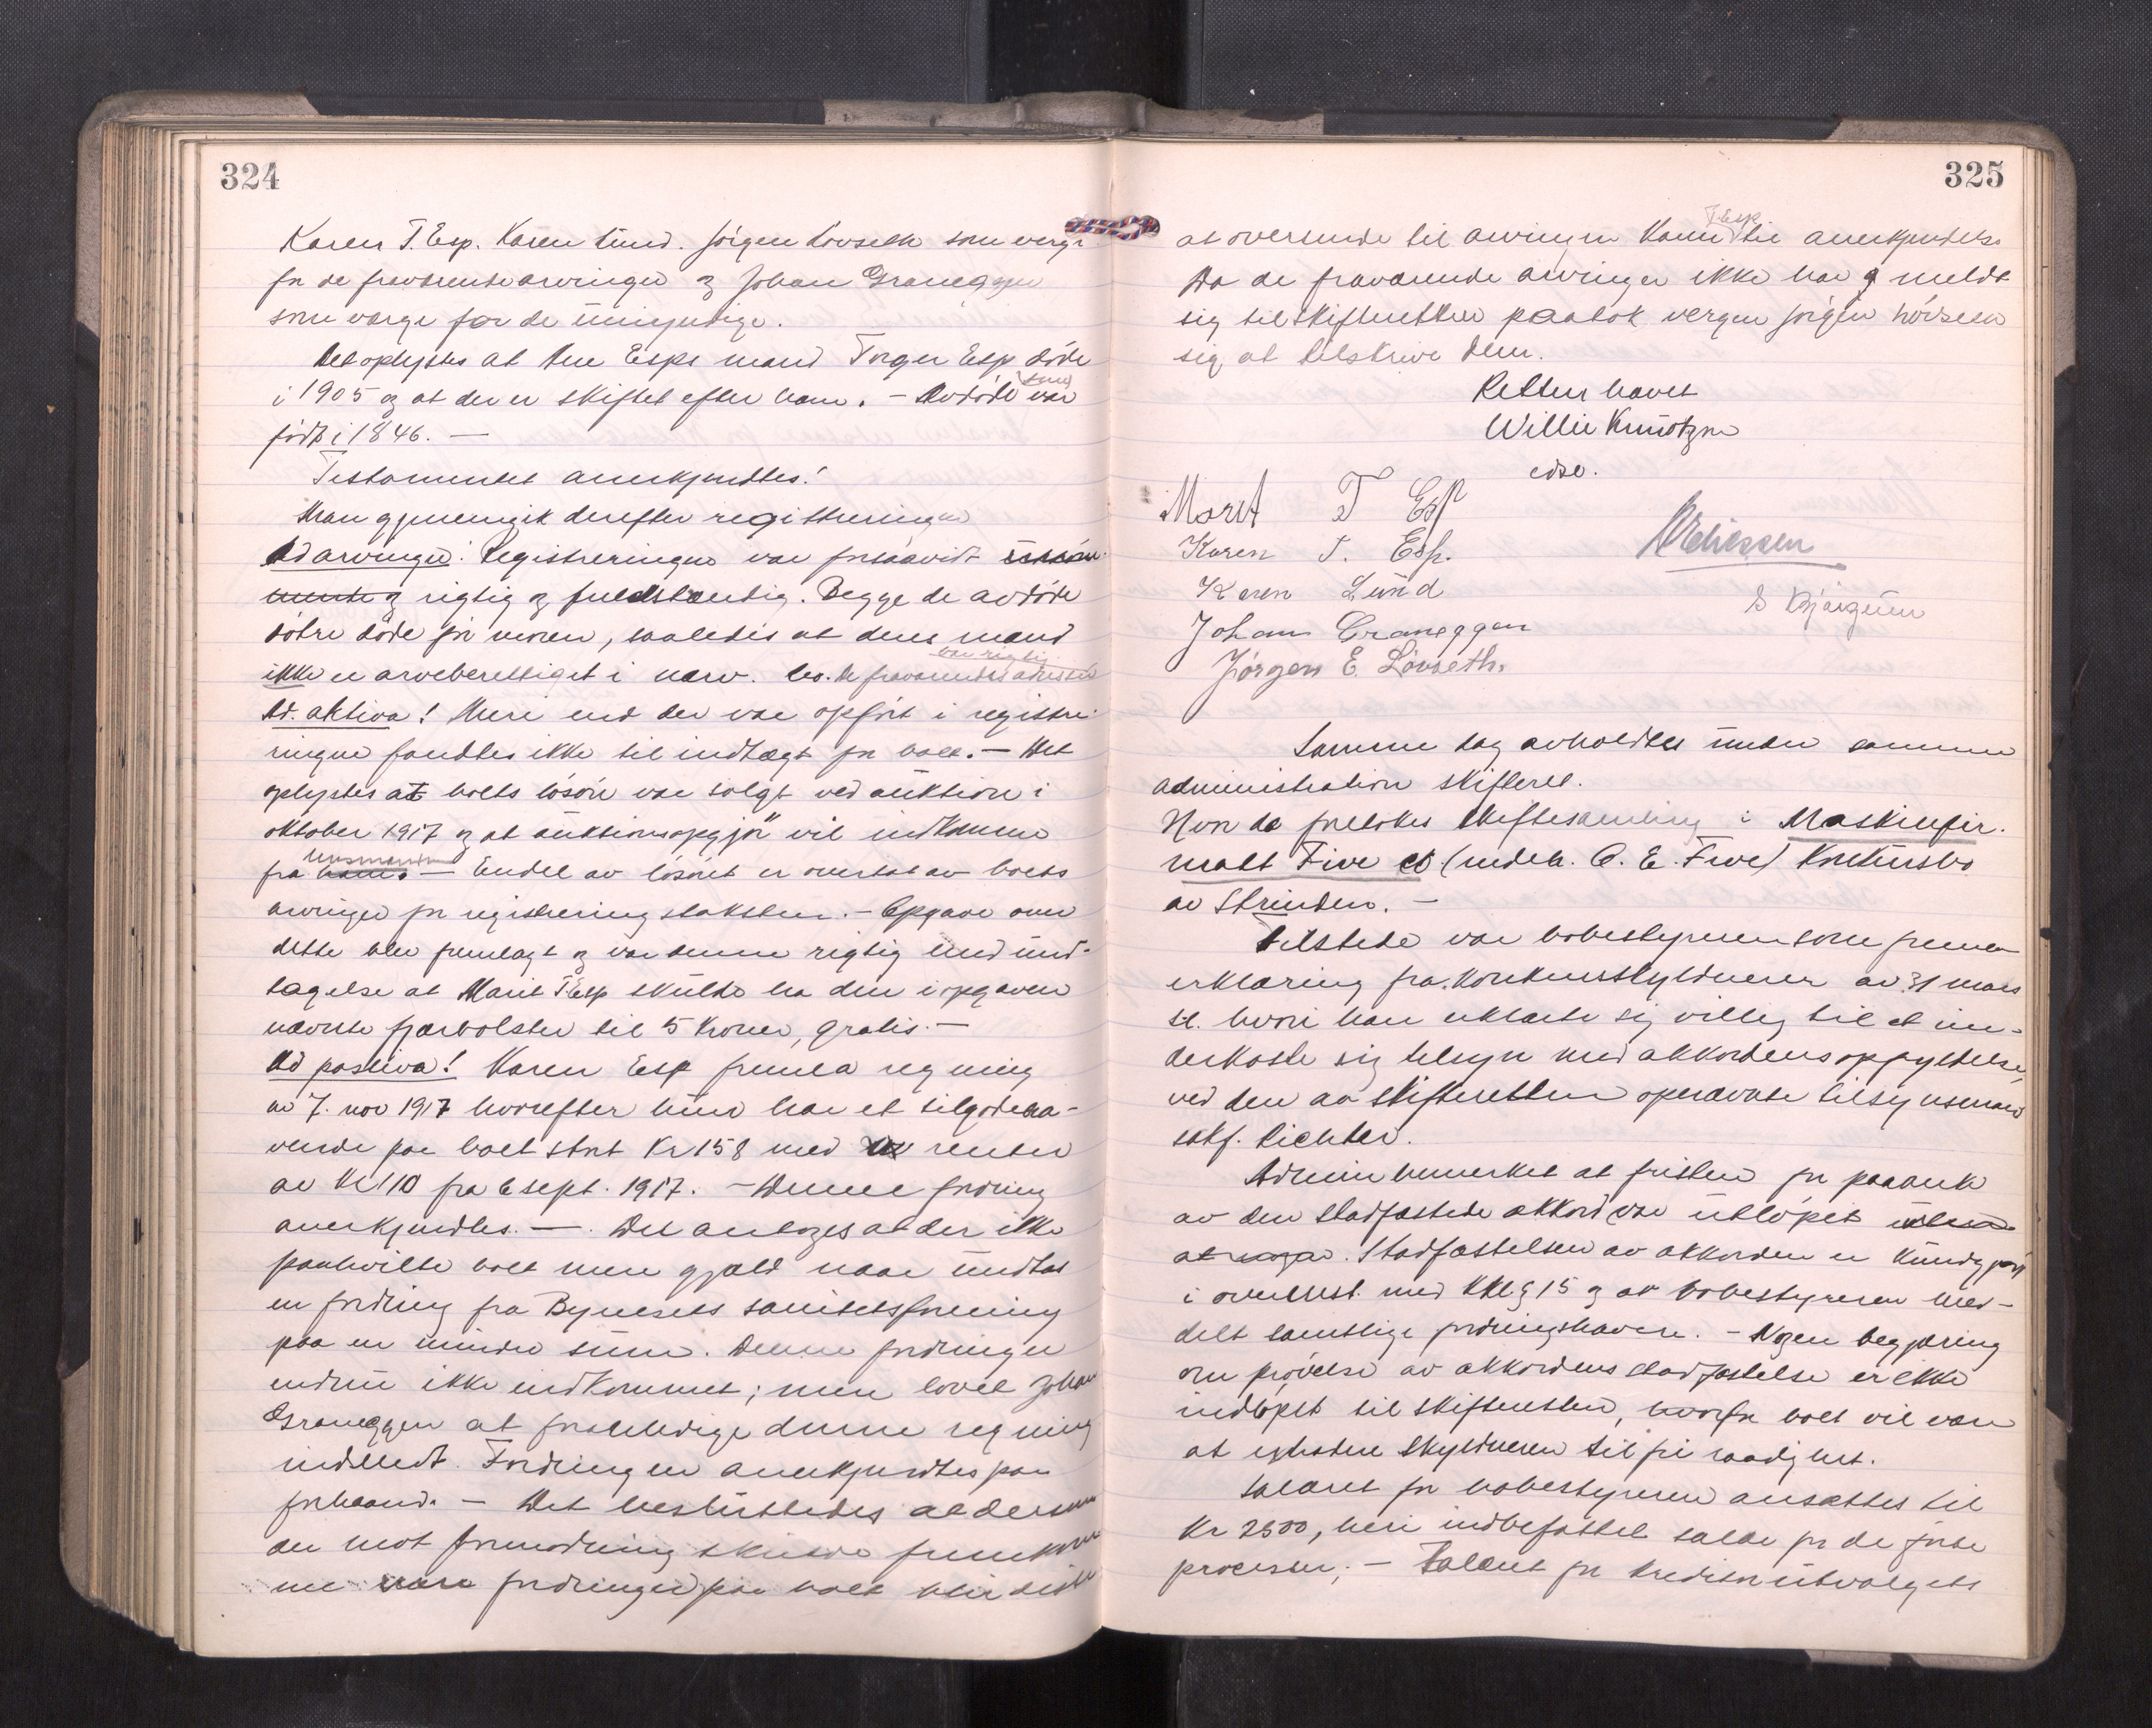 324
Karen T. Esp. Karen Lund. Jörgen Lövseth som verge
for de fraværende arvinger og Johan Graneggen
som værge for de umyndige.
Det oplystes at Ane Esps mand Torger Esp döde
i 1905 og at der er skiftet efter ham. – Avdöde var
födt i 1846. –
Testamentet anerkjendtes!
Man gjennemgik derefter registreringen
Ad arvinger: Registreringen var forsaavidt
og rigtig og fuldstændig. Begge de avdöde
dötre döde för moren, saaledes at deres mænd
var rigtig
ikke er arveberettiget i nærv. bo. De fraværendes adresse
Ad. aktiva! Mere end der var opfört i registre-
ringen fandtes ikke til indtægt for boet. – Det
oplystes at boets lösöre var solgt ved auktion i
oktober 1917 og at auktionsopgjör vil indkomme
lensmanden
fra – Endel av lösöret er overtat av boets
arvinger for registreringstaksten. – Opgave over
dette blev fremlagt og var denne rigtig med und-
tagelse at Marit T Esp skulde ha den i opgaven
nævnte fjærbolster til 5 kroner, gratis. –
Ad passiva! Karen Esp fremla regning
av 7. nov 1917 hvorefter hun har et tilgodeha-
vende paa boet stort Kr 158 med renter
av Kr 110 fra 6 sept. 1917. – Denne fordring
anerkjendtes. – Det antoges at der ikke
paahvilte boet mere gjæld naar undtas
en fordring fra Bynesets sanitetsforening
paa en mindre sum. Denne fordring er
endnu ikke indkommet; men lovet Johan
Graneggen at foranledige denne regning
indsendt. Fordringen anerkjendtes paa
forhaand. – Det besluttedes at dersom
der mot formodning skulde fremkom-
me fordringer paa boet blir disse
325
T Esp
at oversende til arvingen Karen til anerkjendelse
Da de fraværende arvinger ikke har meldt
sig til skifteretten paatok vergen Jörgen Lövseth
sig at tilskrive dem.
Retten hævet
Willie Knudtzon
edso.
Marit T Esp
Karen T. Esp.
Karen Lund
Johan Graneggen
Jörgen E. Lövseth.
Samme dag avholdtes under samme
administration skifteret.
Hvor da foretokes skiftesamling i Maskinfir-
maet Five & Co (indeh. O. E. Five) konkursbo
av Strinden. –
Tilstede var bobestyreren som fremla
erklæring fra konkursskyldneren av 31 mars
sl. hvori han erklærte sig villig til at un-
derkaste sig tilsyn med akkordens oppfyldelse,
ved den av skifteretten opnævnte tilsynsmand
sakf. Richter.
Admin bemerket at fristen for paaanke
av den stadfæstede akkord var utlöpet
Stadfæstelsen av akkorden er kundgjort
i overensst. med KKL § 15 og av bobestyreren med-
delt samtlige fordringshavere. – Nogen begjæring
om prövelse av akkordens stadfæstelse er ikke
indlöpet til skifteretten, hvorfor boet vil være
at extradere skyldneren til fri raadighet.
Salæret for bobestyreren ansættes til
Kr 2500, heri indbefattet salær for de förte
processer; – Salæret for kreditorutvalgets